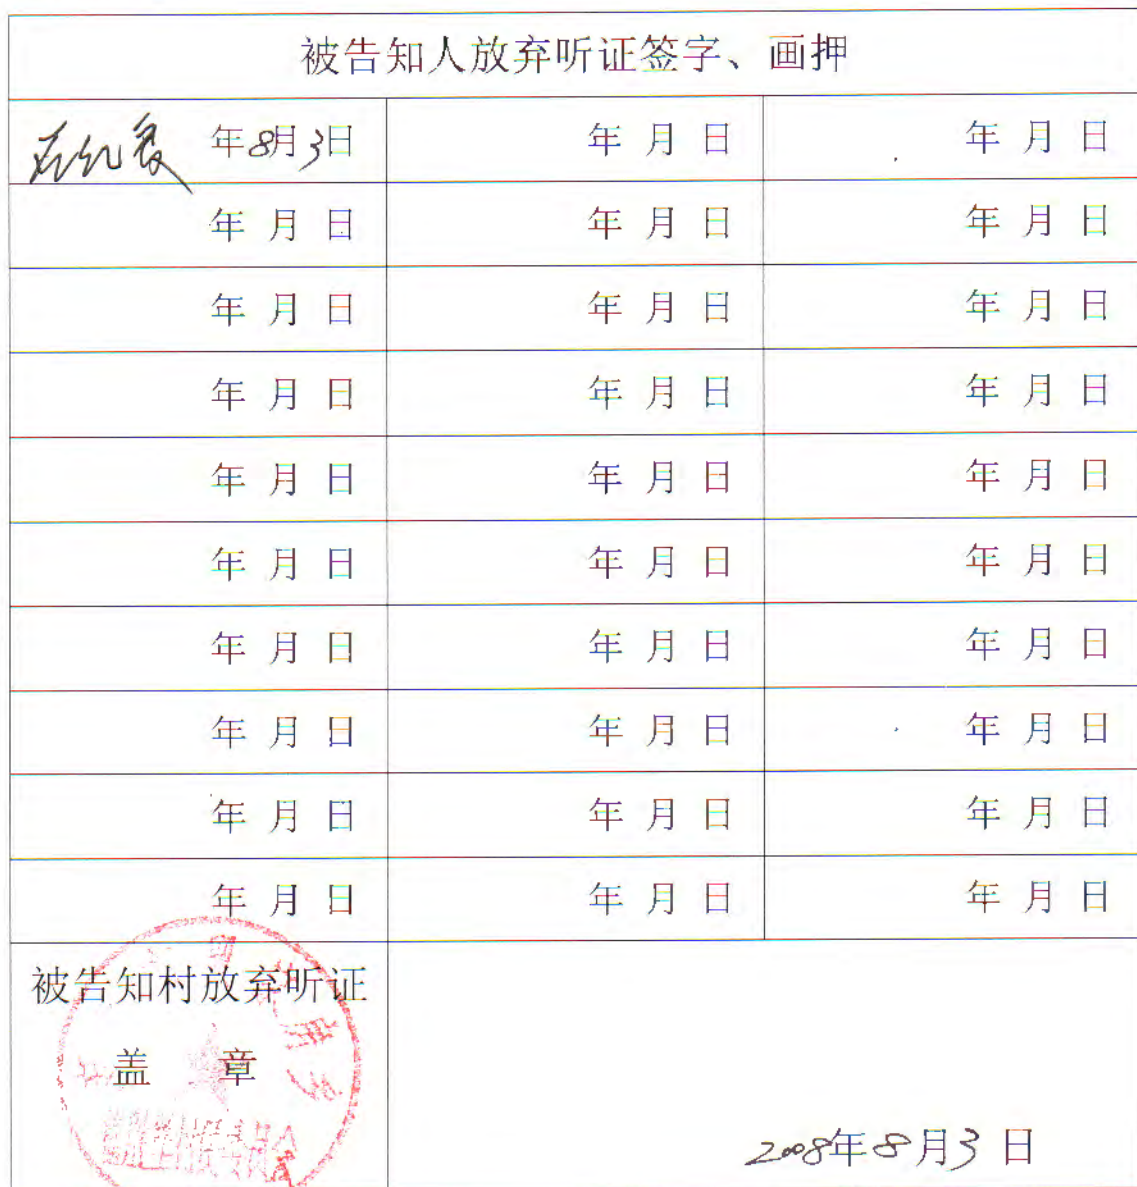 被告知人放弃听证签字、画押
年8月3日 年 月 日 年 月 日
年 月 日 年 月 日 年 月 日
年 月 日 年 月 日 年 月 日
年 月 日 年 月 日 年 月 日
年 月 日 年 月 日 年 月 日
年 月 日 年 月 日 年 月 日
年 月 日 年 月 日 年 月 日
年 月 日 年 月 日 年 月 日
年 月 日 年 月 日 年 月 日
年 月 日 年 月 日 年 月 日
被告知村放弃听证
盖 章
2008年8月3日